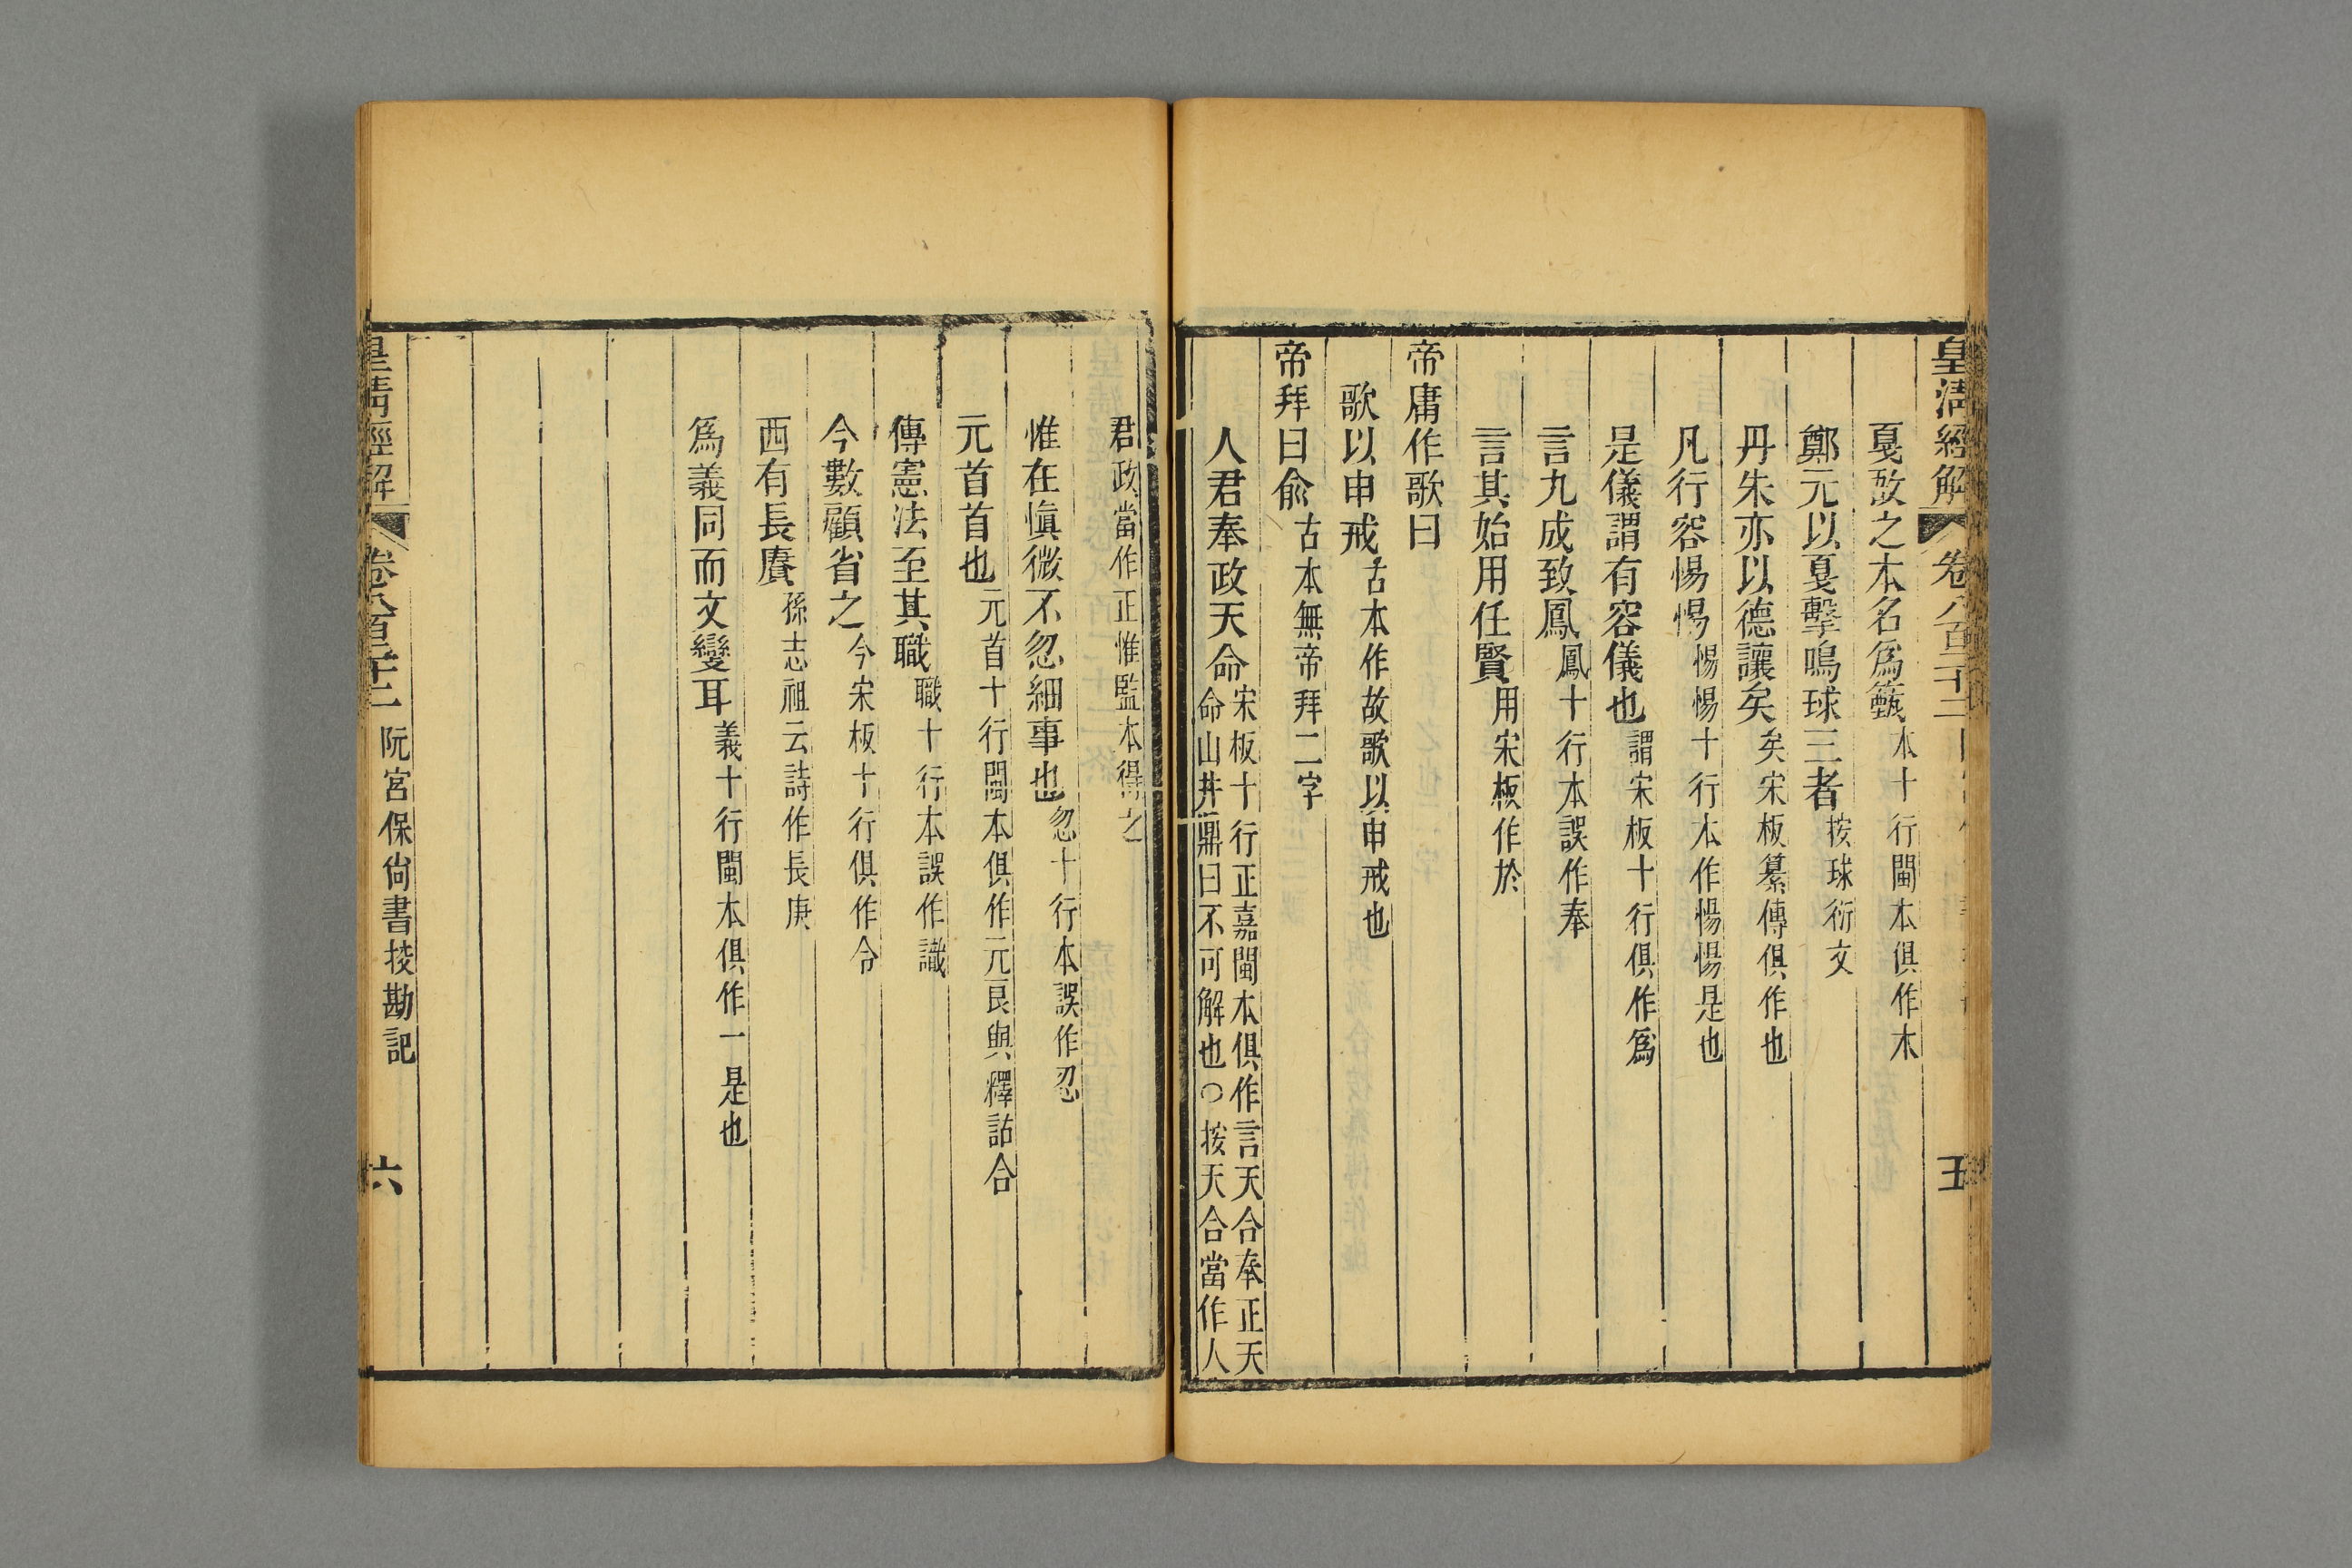 皇淸經解 卷八百二十二 五
戛敔之木名爲籈木十行閩本俱作木
鄭元以戛擊鳴球三者按球衍文
丹朱亦以德讓矣矣宋板纂傳俱作也
凡行容惕惕惕惕十行本作愓愓是也
是儀謂有容儀也謂宋板十行俱作爲
言九成致鳳鳳十行本誤作奉
言其始用任賢用宋板作於
帝庸作歌曰
歌以申戒古本作故歌以申戒也
帝拜曰俞古本無帝拜二字
人君奉政天命宋板十行正嘉閩本俱作言天合奉正天
命山井鼎曰不可解也○按天合當作人
君政當作正惟監本得之
惟在愼微不忽細事也忽十行本誤作忍
元首首也元首十行閩本俱作元良與釋詁合
傳憲法至其職職十行本誤作識
今數顧省之今宋板十行俱作令
西有長賡孫志祖云詩作長庚
爲義同而文變耳義十行閩本俱作一是也
皇淸經解 卷八百二十二 阮宮保尙書挍勘記 六